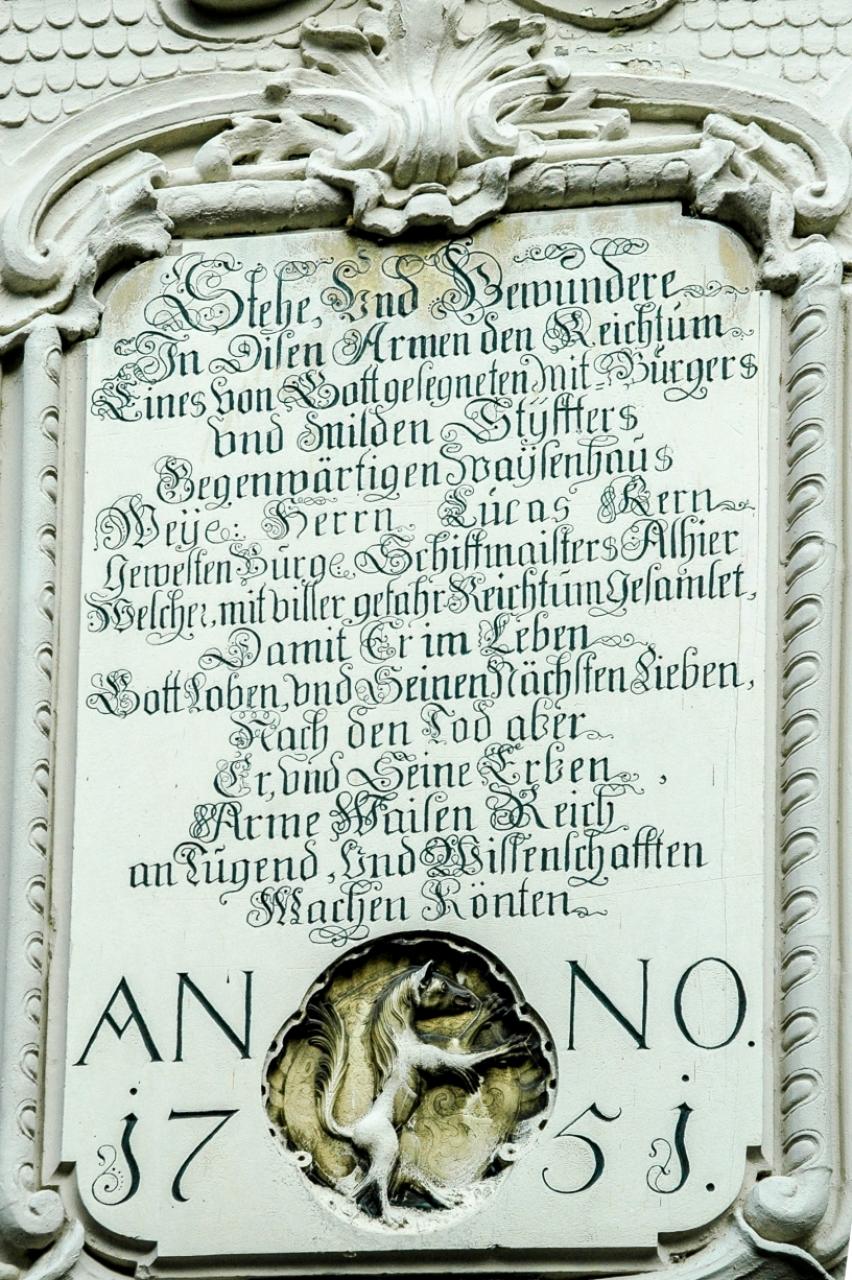 Stehe, Und Bewundere
In Disen Armen den Reichtum
Eines von Gott gesegneten Mit-Bürgers
vnd milden Stÿffters
Gegenwärtigen Waÿsenhaus
Weÿl: Herrn Lucas Kern
Gewesten Bürg: Schiffmaisters Alhier
Welcher, mit viller gefahr Reichtum Gesamlet,
Damit Er im Leben
Gott Loben, vnd Seinen Nächsten Lieben,
Nach den Tod aber
Er, vnd Seine Erben,
Arme Waisen Reich
an Tugend, Und Wissenschafften
Machen Könten
ANNO.
1751.